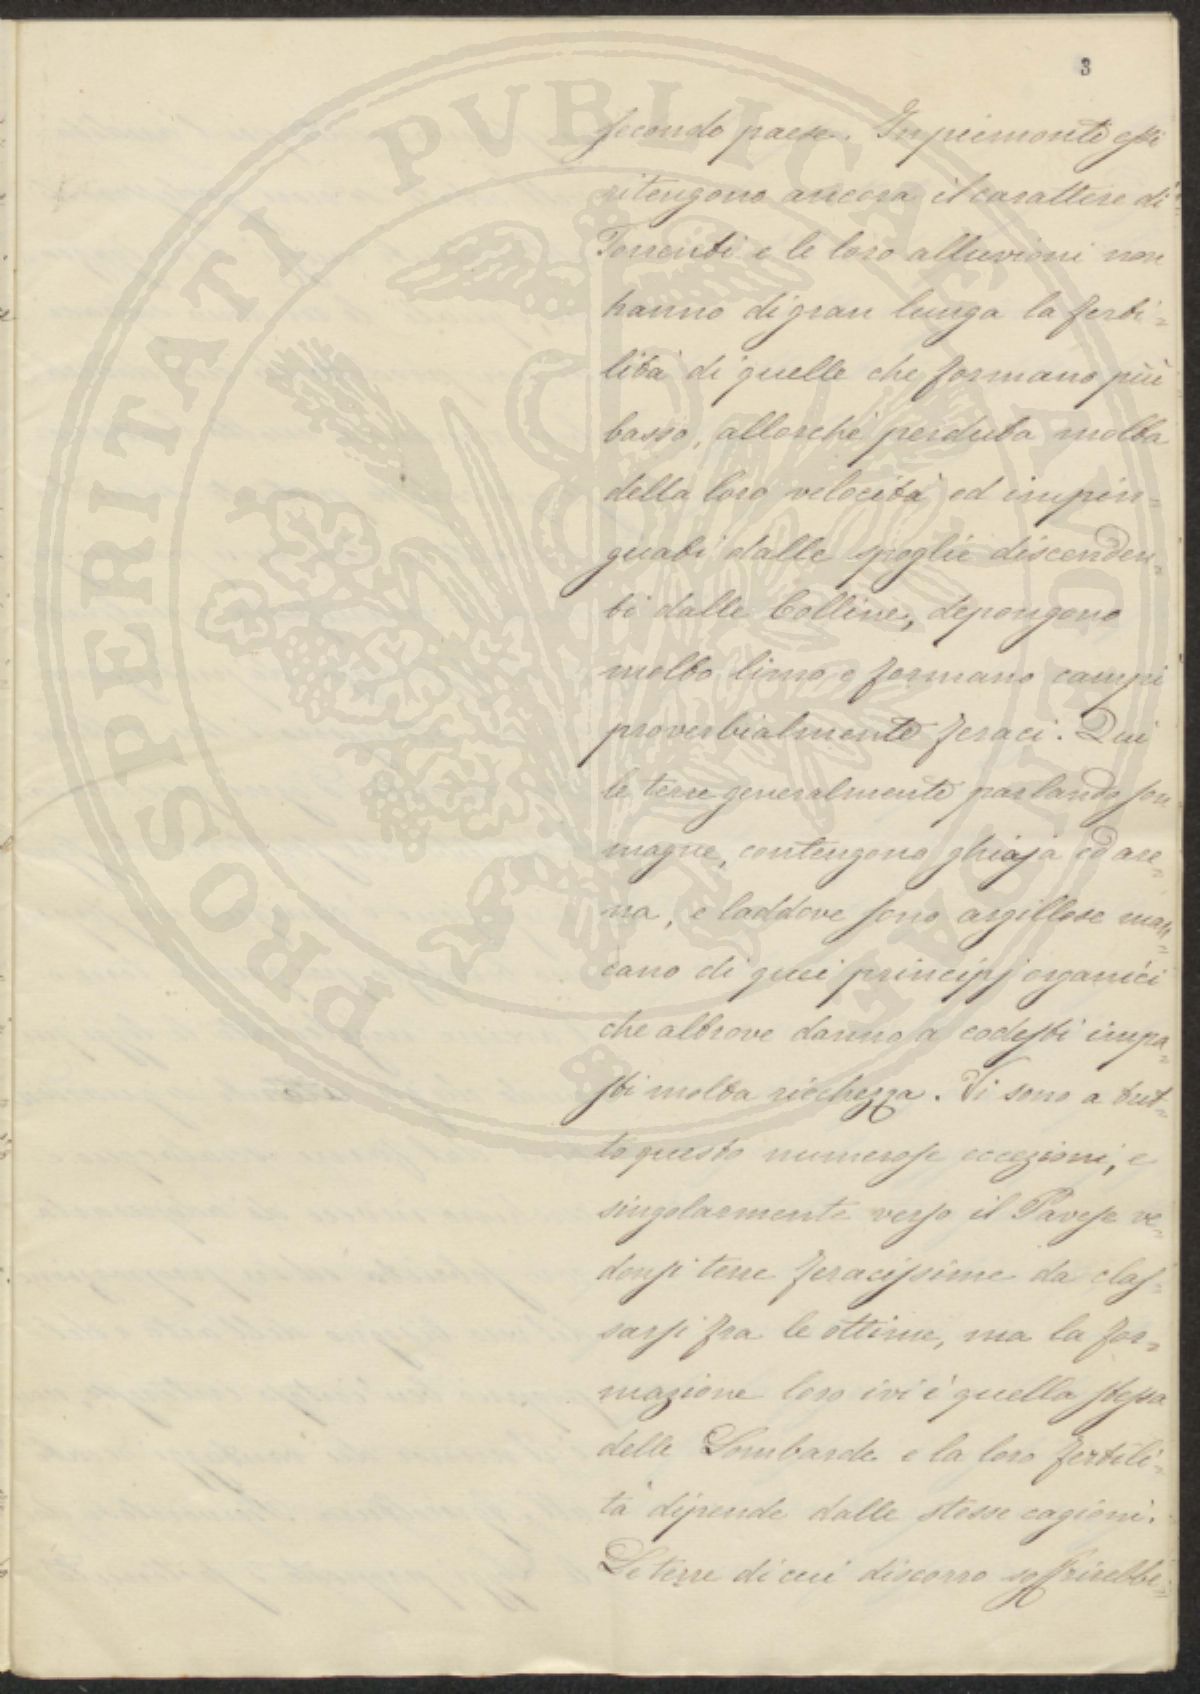 3
secondo paese. In piemonte essi
ritengono ancora il carattere di
Torrenti e le loro alluvioni non
hanno di gran lunga la ferti-
lità di quelle che formano più
basso, allorchè perduta molta
della loro velocità ed impin-
guati dalle spoglie discenden-
ti dalle Colline, depongono
molto limo e formano campi
proverbialmente feraci. Qui
le terre generalmente parlando son
magre, contengono ghiaja ed are-
na, e laddove sono argillose man-
cano di quei principj organici
che altrove danno a codesti impa-
sti molta ricchezza. Vi sono a tut-
to questo numerose eccezioni, e
singolarmente verso il Pavese ve-
donsi terre feracissime da clas-
sarsi fra le ottime, ma la for-
mazione loro ivi è quella stessa
delle Lombarde e la loro fertili-
tà dipende dalle stesse cagioni.
Le terre di cui discorro soffrirebbe-
PROSPERITATI PVBLICAE AVGENDAE